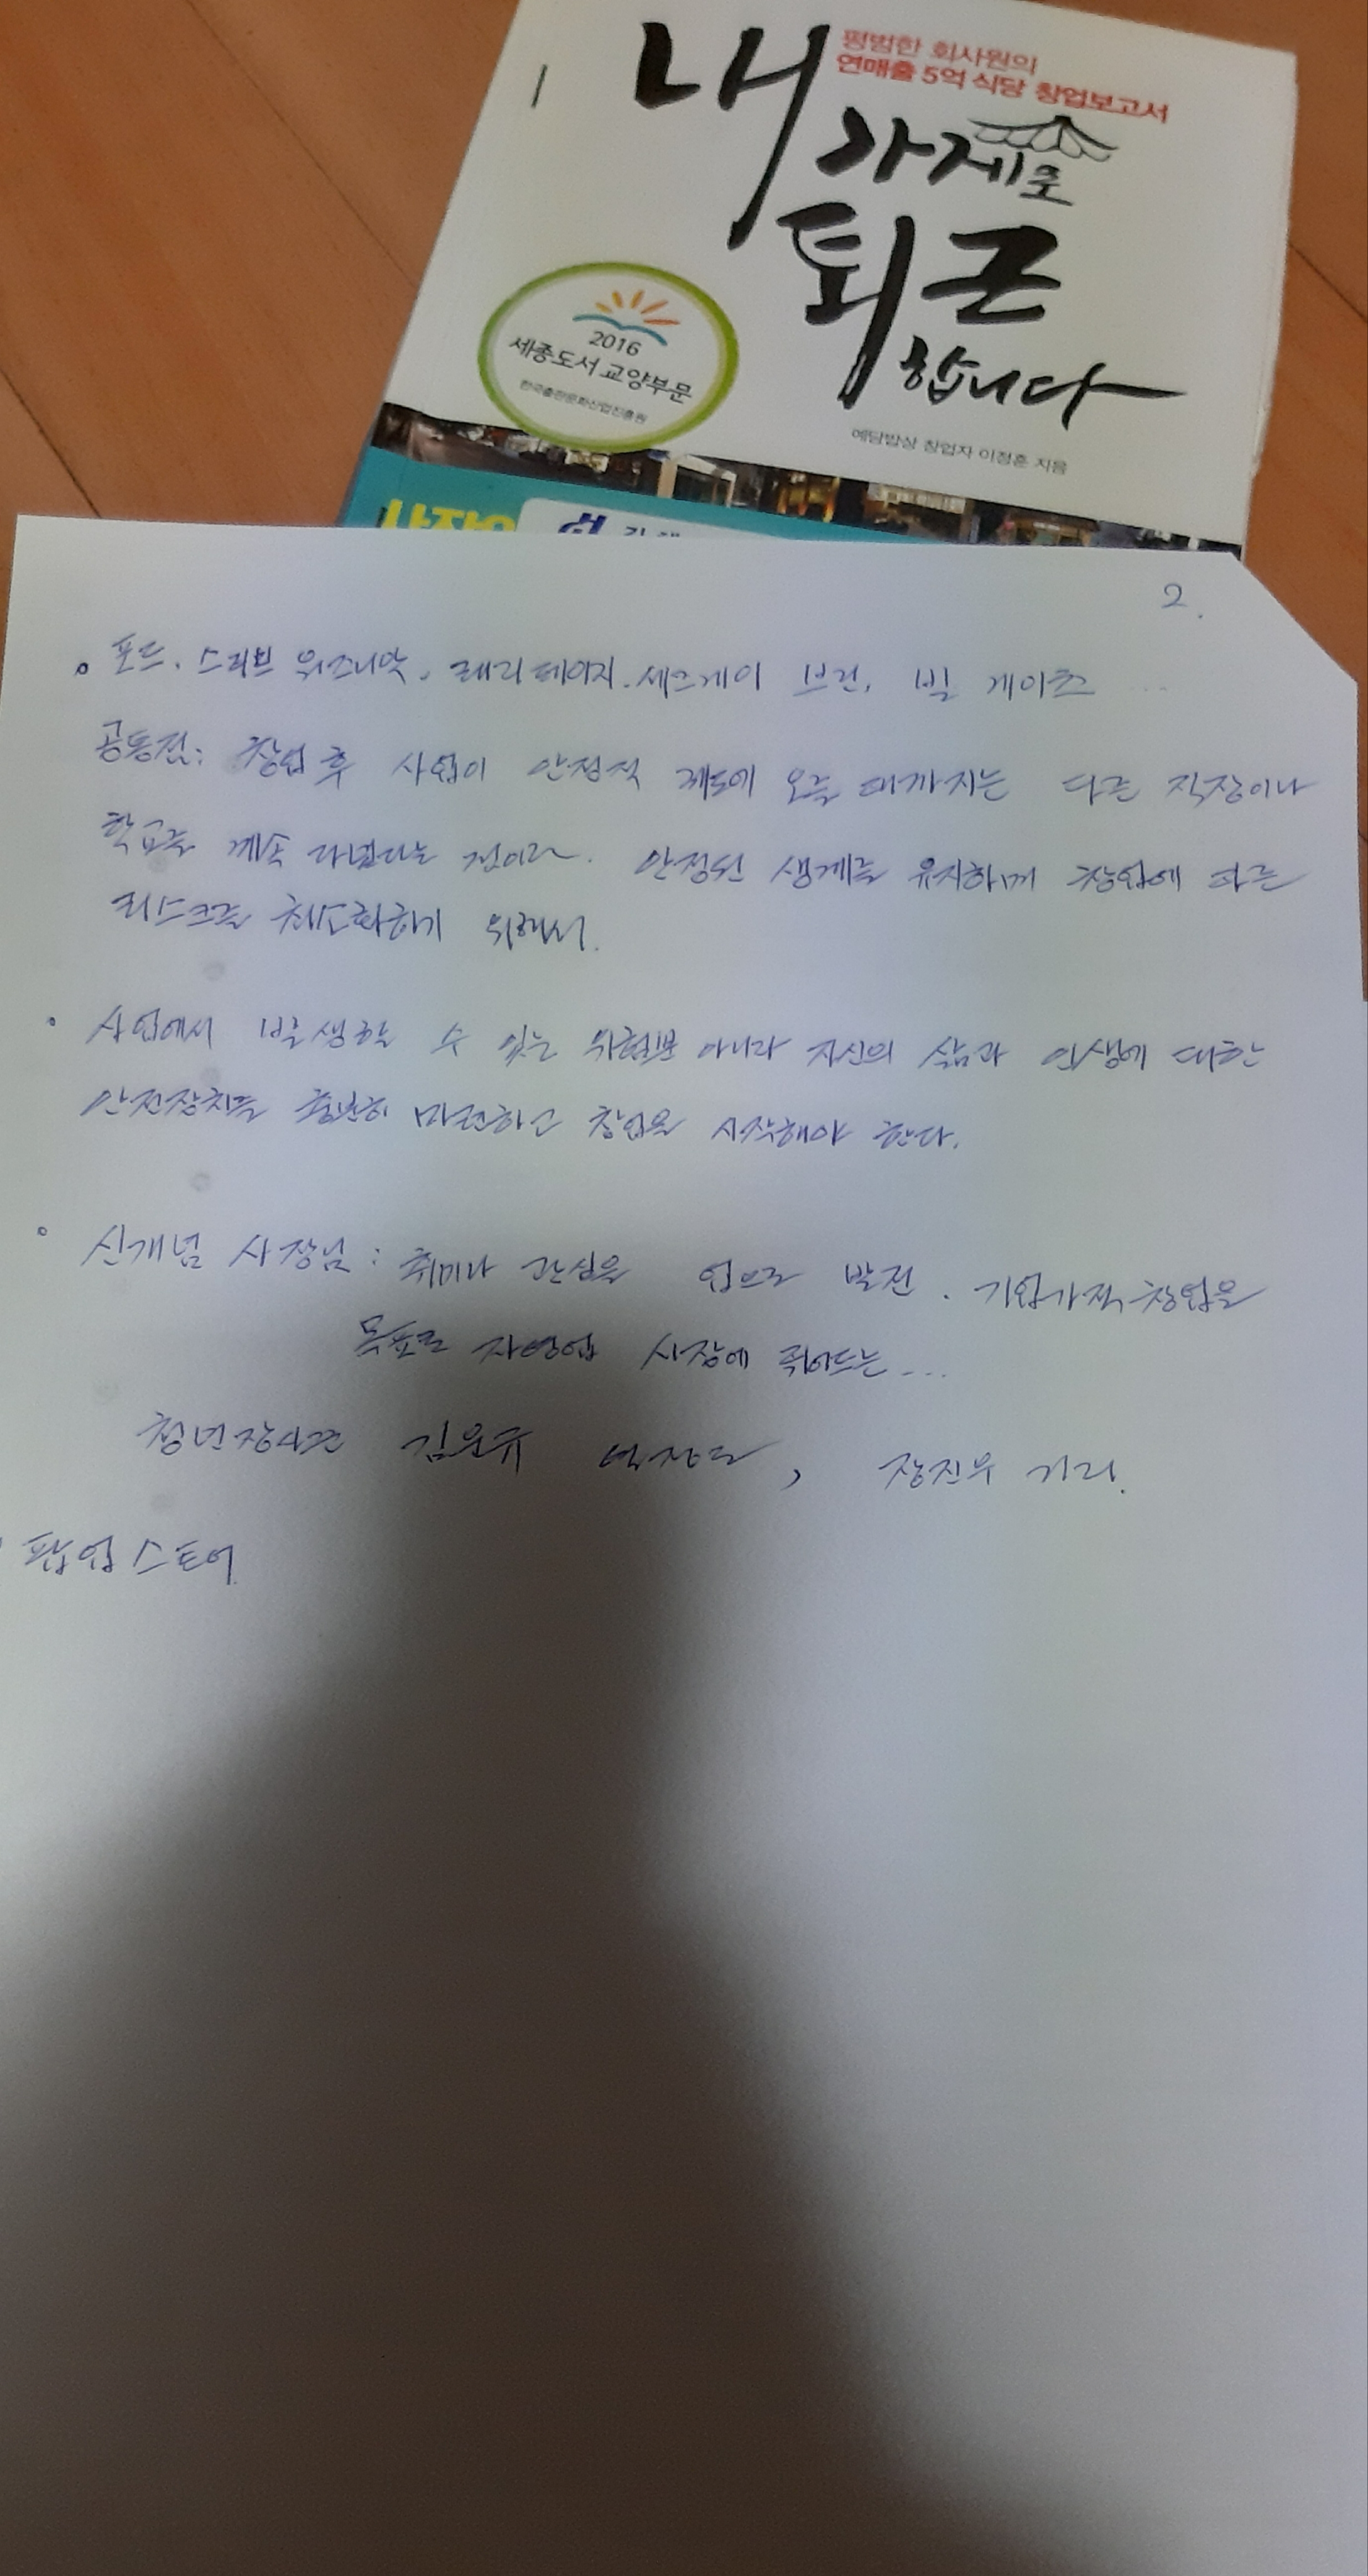 평범한 회사원의
연매출 5억 식당 창업보고서
내
가게로
퇴근
합니다
2016
세종도서 교양부문
한국출판문화산업진흥원
예담밥상 창업자 이정훈 지음
2.
포드. 스티브 워즈니악. 래리 페이지. 세르게이 브린, 빌 게이츠 ...
공동점: 창업 후 사업이 안정적 궤도에 오를 때까지는 다른 직장이나
학교를 계속 다녔다는 점이다. 안정된 생계를 유지하며 창업에 따른
리스크를 최소화하기 위해서.
사업에서 발생할 수 있는 위험뿐 아니라 자신의 삶과 인생에 대한
안전장치를 충분히 마련하고 창업을 시작해야 한다.
신개념 사장님 : 취미나 관심을 업으로 발전. 기업가적 창업을
목표로 자영업 시장에 뛰어드는...
청년장사꾼 김윤규 , 장진우 거리.
팝업스토어